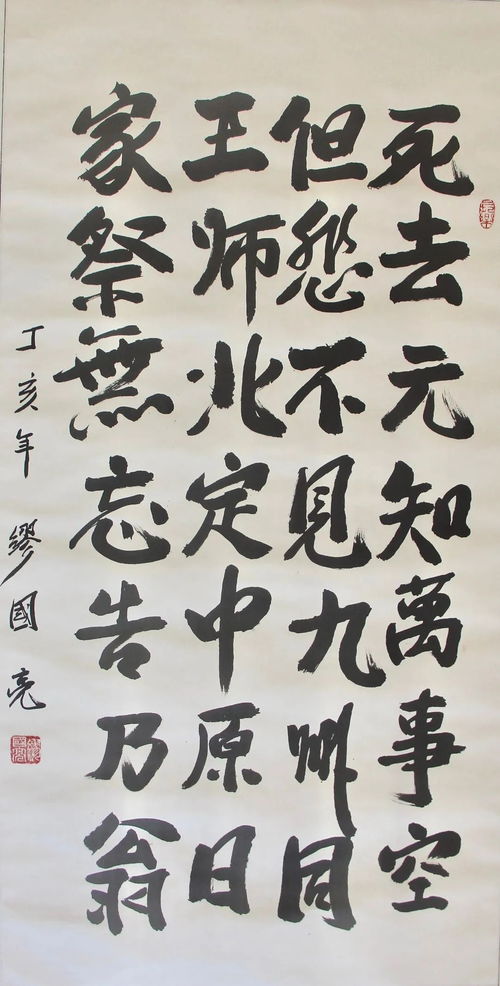 死去元知萬事空
但悲不見九州同
王师北定中原日
家祭無忘告乃翁
丁亥年 繆國亮